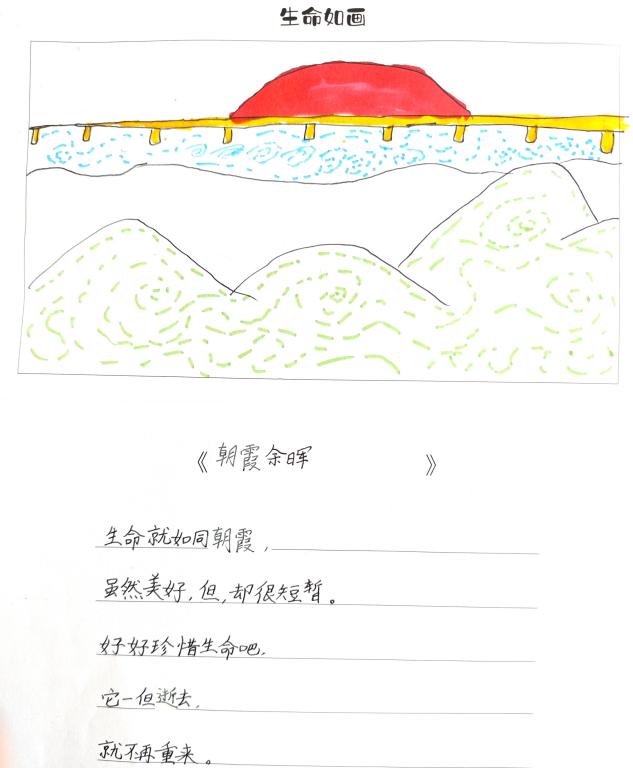 生命如画
《朝霞余晖》
生命就如同朝霞，
虽然美好，但，却很短暂。
好好珍惜生命吧，
它一但逝去，
就不再重来。